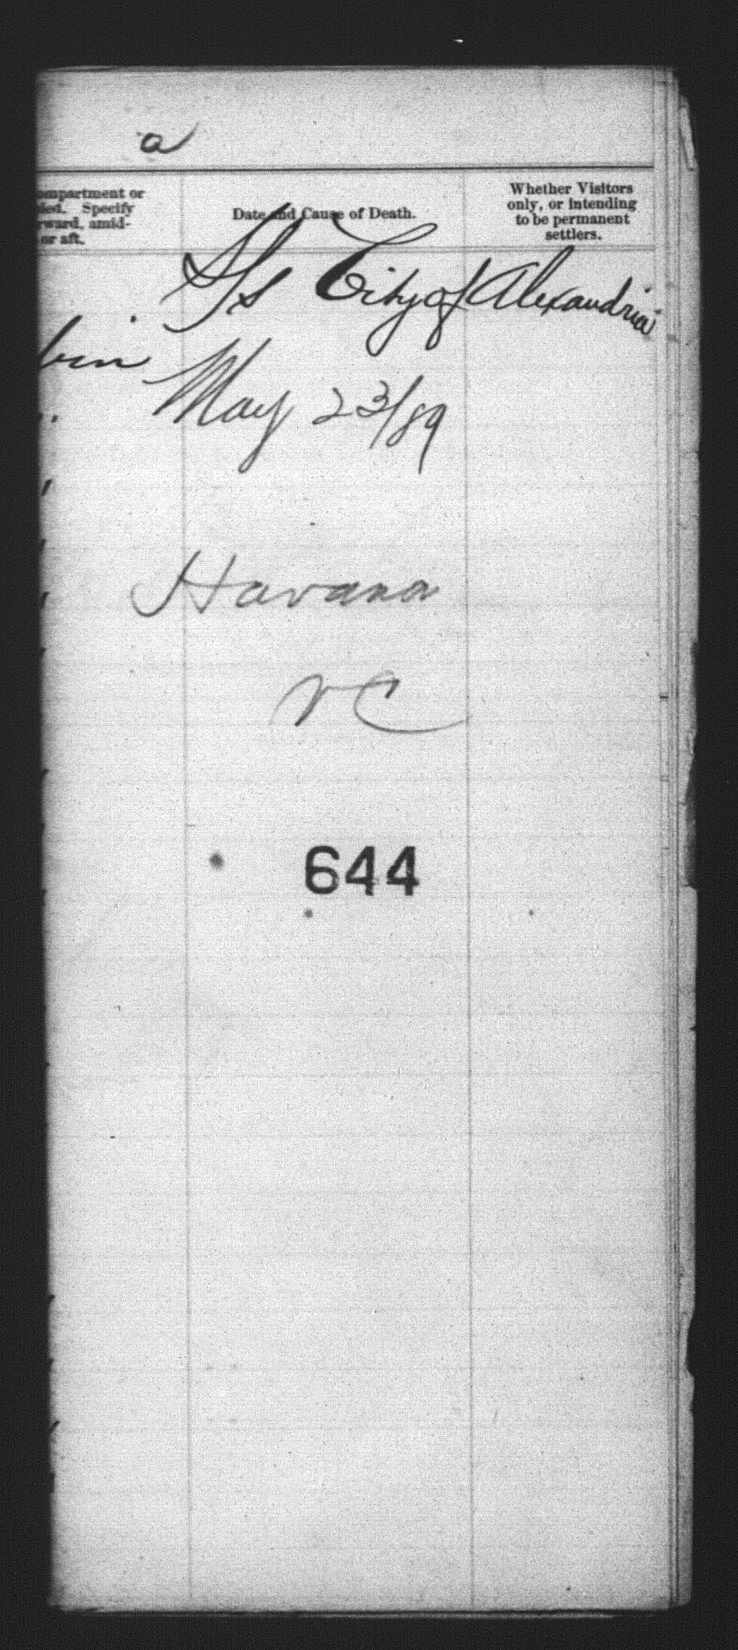 a
ompartment or
ded. Specify
rward, amid-
or aft.
Date and Cause of Death.
Whether Visitors
only, or intending
to be permanent
settlers.
Ss City of Alexandria
bin
May 23/89
Havana
VC
644